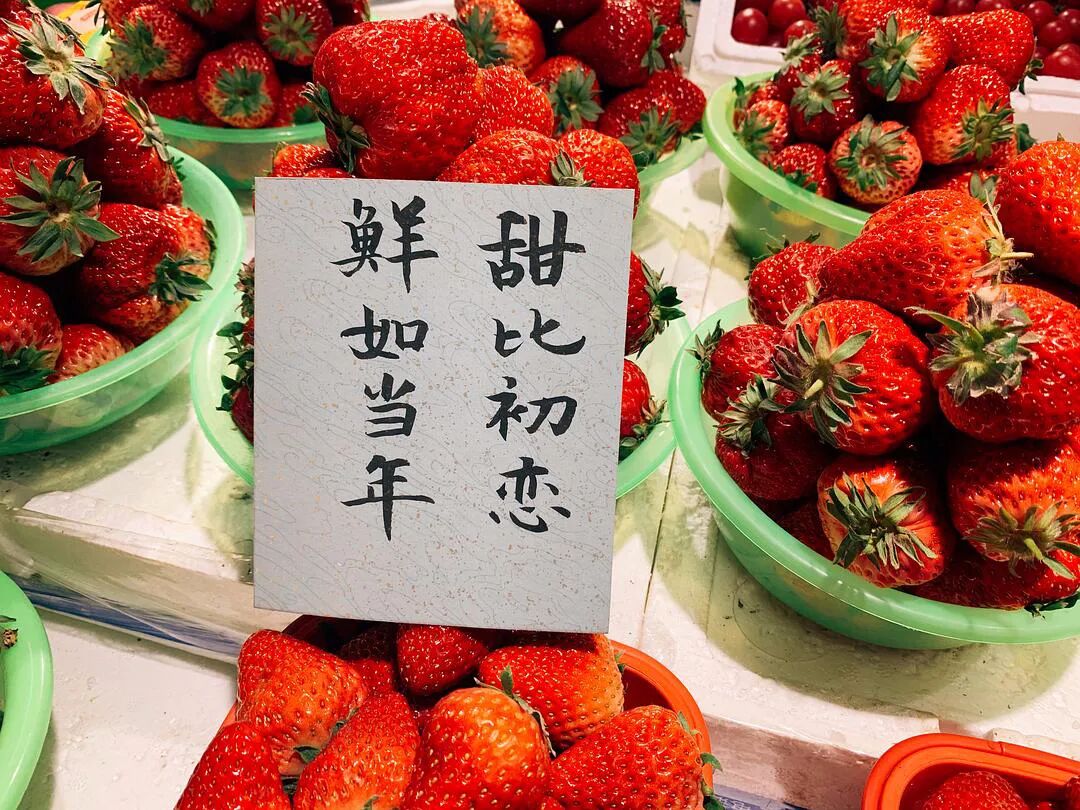 甜比初恋
鲜如当年